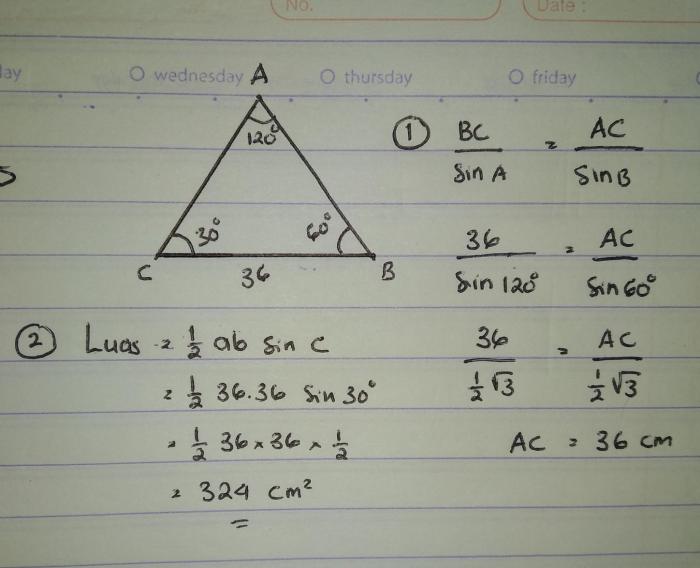 No.
Date :
day
wednesday
thursday
friday
A
120°
30°
60°
C
36
B
① BC / Sin A = AC / Sin B
36 / Sin 120° = AC / Sin 60°
36 / ½√3 = AC / ½√3
AC = 36 cm
② Luas = ½ ab Sin C
= ½ 36.36 Sin 30°
= ½ 36 × 36 × ½
= 324 cm²